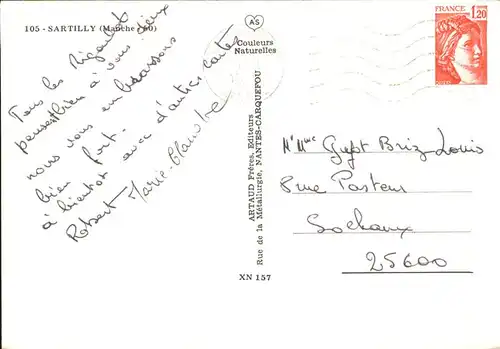 105 - SARTILLY (Manche - 50)
Tous les Rigault
pensent bien à vous deux
nous vous embrassons
bien fort.
à bientôt avec d'autres cartes
Robert Marie-Claude
AS
Couleurs
Naturelles
ARTAUD Frères, Editeurs
Rue de la Métallurgie, NANTES-CARQUEFOU
XN 157
FRANCE
1,20
Mr Mme Briz Louis
8 rue Pasteur
Sochaux
25600